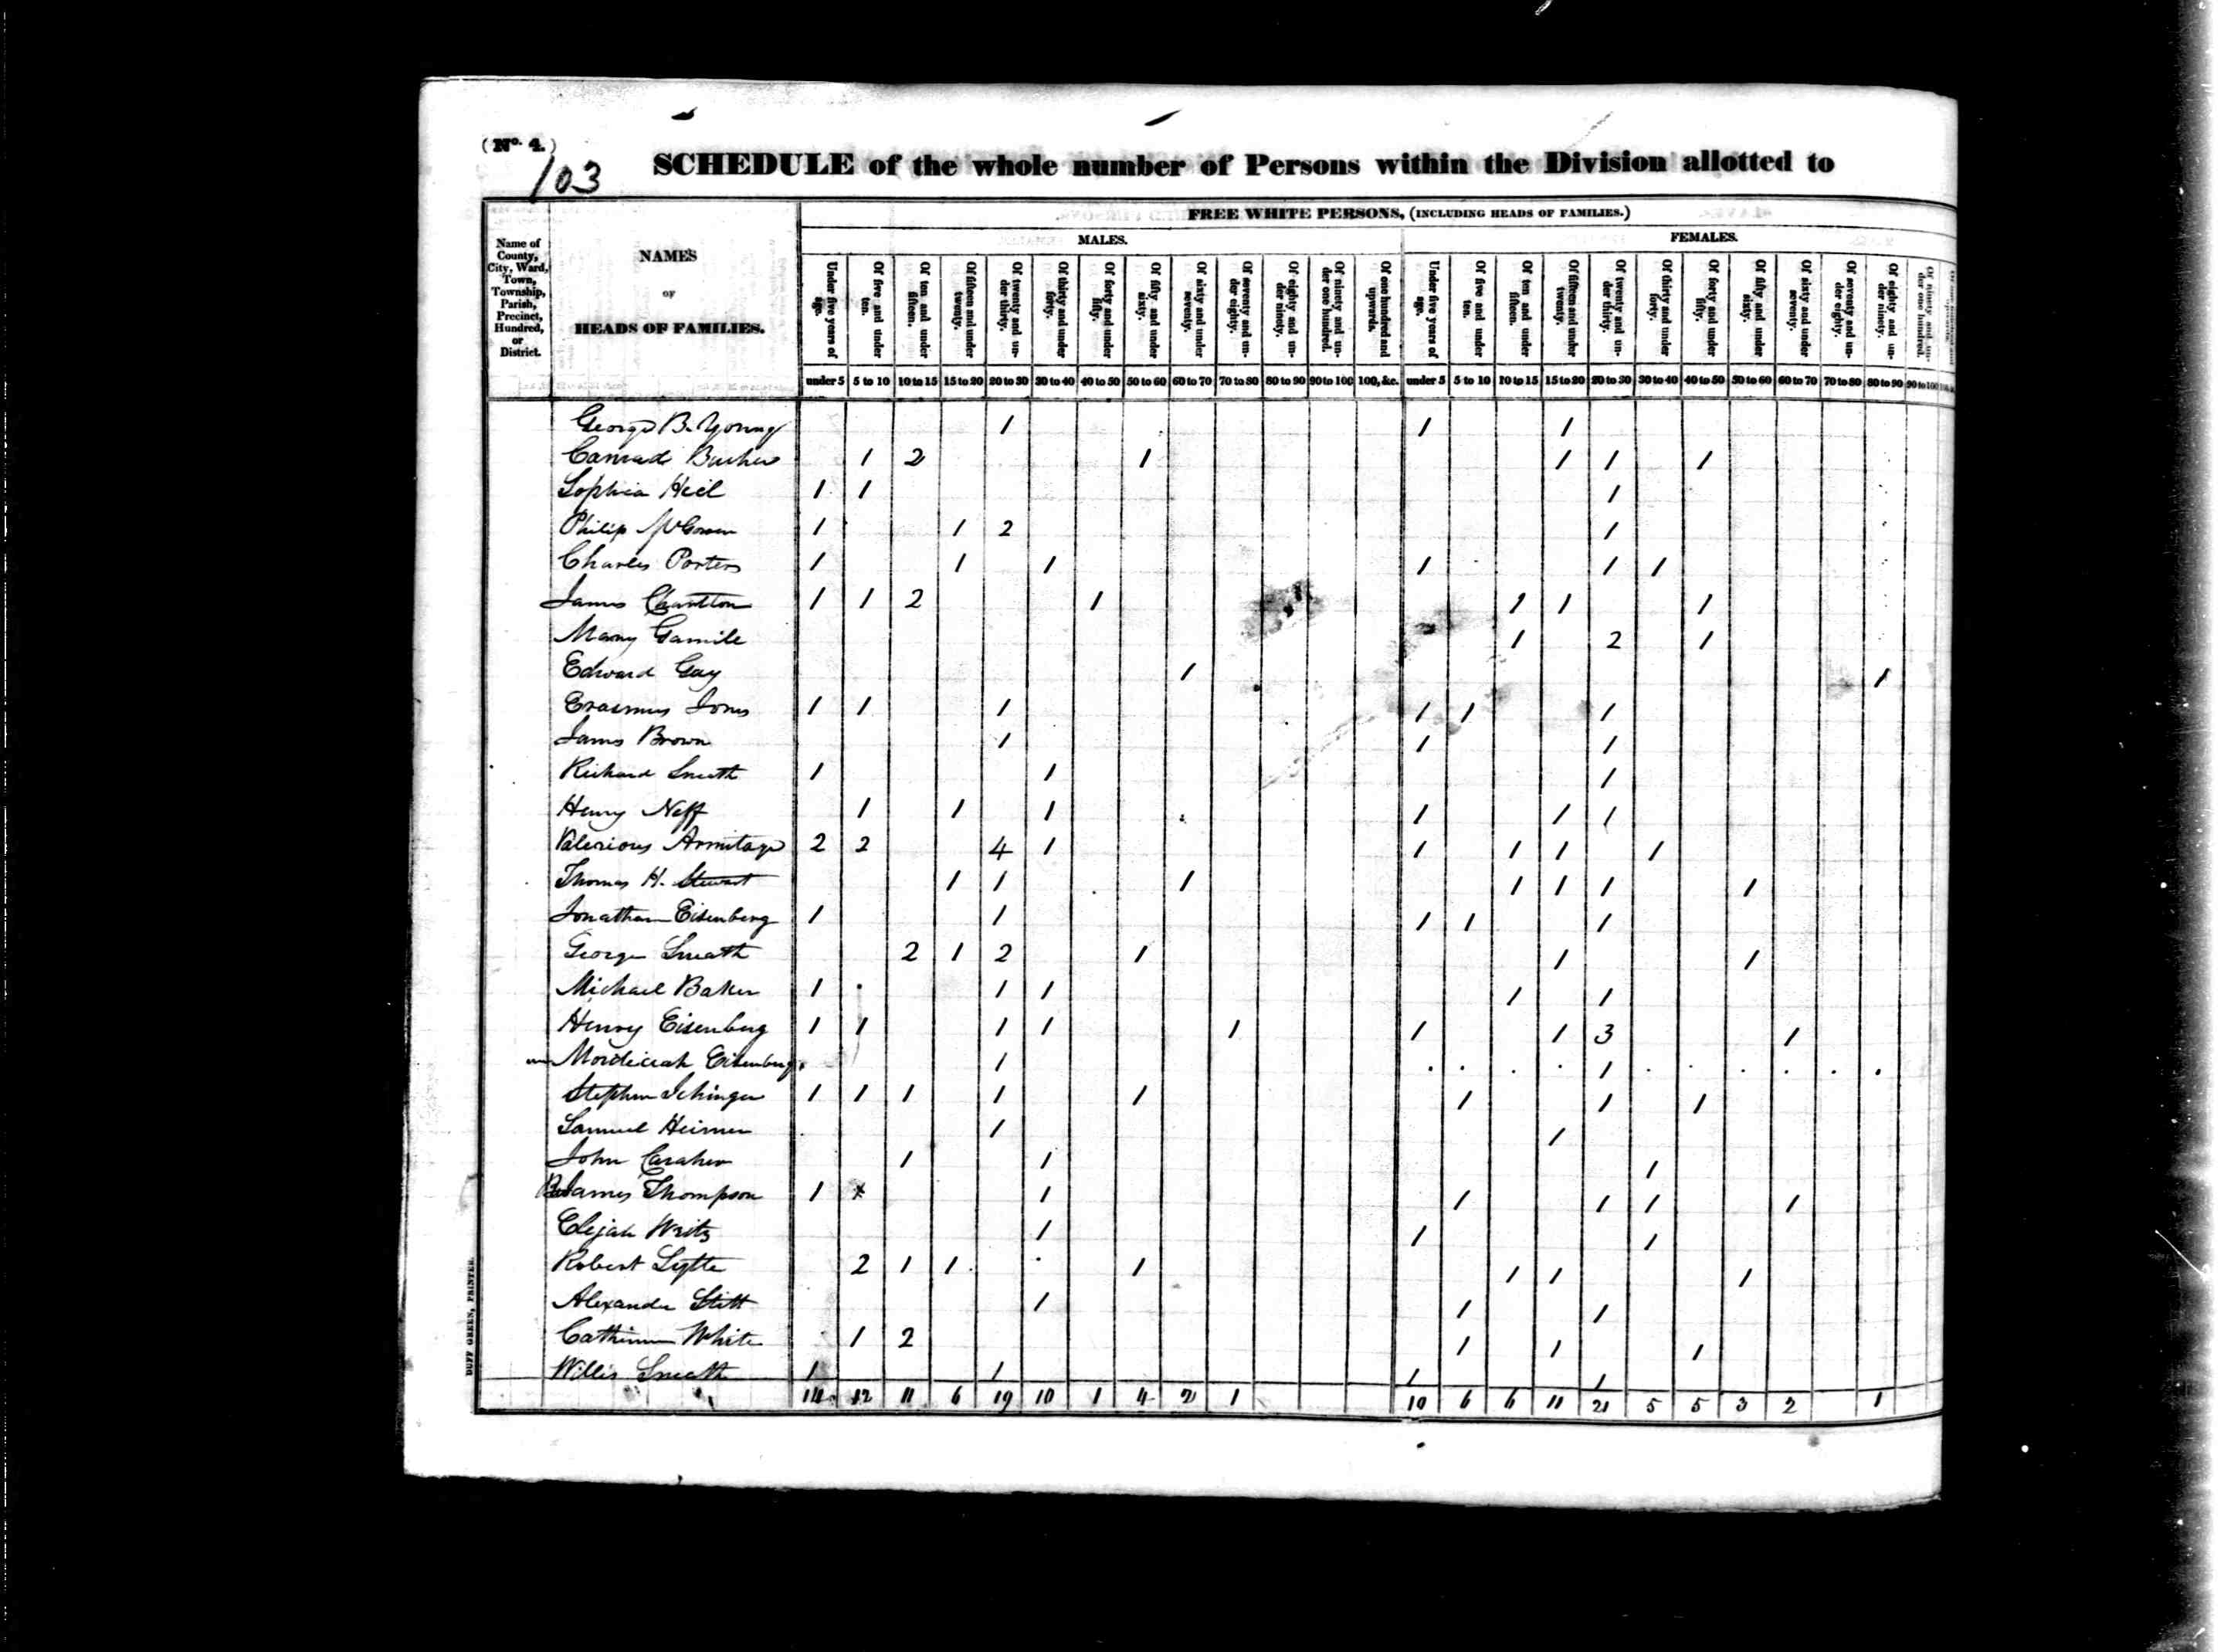 (No. 4.)
103
SCHEDULE of the whole number of Persons within the Division allotted to
FREE WHITE PERSONS, (INCLUDING HEADS OF FAMILIES.)
MALES. FEMALES.
Name of County, City, Ward, Town, Township, Parish, Precinct, Hundred, or District.
NAMES OF HEADS OF FAMILIES.
Under five years of age. Of five and under ten. Of ten and under fifteen. Of fifteen and under twenty. Of twenty and under thirty. Of thirty and under forty. Of forty and under fifty. Of fifty and under sixty. Of sixty and under seventy. Of seventy and under eighty. Of eighty and under ninety. Of ninety and under one hundred. Of one hundred and upwards. Under five years of age. Of five and under ten. Of ten and under fifteen. Of fifteen and under twenty. Of twenty and under thirty. Of thirty and under forty. Of forty and under fifty. Of fifty and under sixty. Of sixty and under seventy. Of seventy and under eighty. Of eighty and under ninety. Of ninety and under one hundred.
under 5 5 to 10 10 to 15 15 to 20 20 to 30 30 to 40 40 to 50 50 to 60 60 to 70 70 to 80 80 to 90 90 to 100 100, &c. under 5 5 to 10 10 to 15 15 to 20 20 to 30 30 to 40 40 to 50 50 to 60 60 to 70 70 to 80 80 to 90 90 to 100
George B. Young 1 1 1
1 2 1 1 1 1
Sophia Heil 1 1 1
Philip McGowen 1 1 2 1
Charles Porter 1 1 1 1 1 1
James Charlton 1 1 2 1 1 1 1
Mary Gamile 1 2 1
Edward Gay 1 1
Erasmus Jones 1 1 1 1 1 1
James Brown 1 1 1
Richard Smith 1 1 1
Henry Neff 1 1 1 1 1 1
Valerious Armitage 2 2 4 1 1 1 1 1
Thomas H. Stewart 1 1 1 1 1 1 1
Jonathan Eisenberg 1 1 1 1 1
George Smith 2 1 2 1 1 1
Michael Baker 1 1 1 1 1
Henry Eisenberg 1 1 1 1 1 1 1 3 1
Mordiciah Eisenberg 1 1
Stephen 1 1 1 1 1 1 1 1
Samuel Heimer 1 1
John Caraher 1 1 1
James Thompson 1 x 1 1 1 1 1
Elijah 1 1 1
Robert Lytle 2 1 1 1 1 1 1
Alexander Stitt 1 1 1
Catherine White 1 2 1 1 1
Willis Smith 1 1 1 1
14 12 11 6 19 10 1 4 2 1 10 6 6 11 21 5 5 3 2 1
DUFF GREEN, PRINTER.